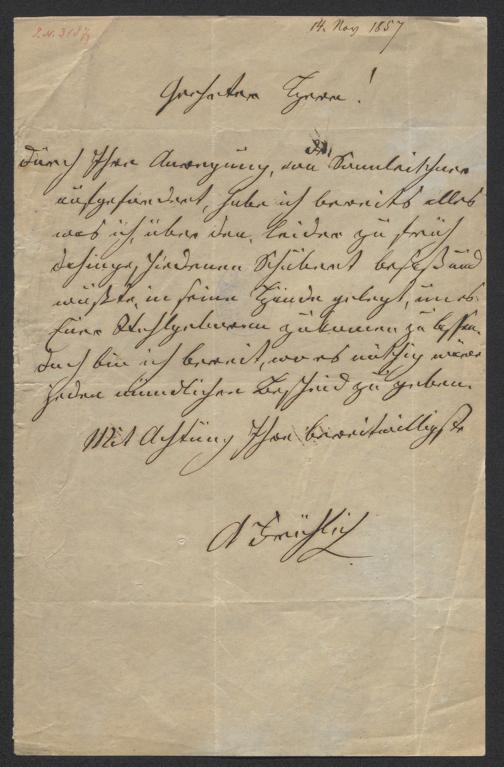 I.N. 313
14. Nov 1857
Geehrter Herr!
Durch Ihre Anregung, von Dr. Sonnleithner
aufgefordert, habe ich bereits alles
was ich über den, leider zu früh
dahingeschiedenen Schubert besaß und
wußte, in seine Hände gelegt, um es
Euer Wohlgeboren zukomen zu lassen.
Doch bin ich bereit, wo es nöthig wäre
jeden mündlichen Bescheid zu geben.
Mit Achtung Ihre bereitwilligste
A Fröhlich